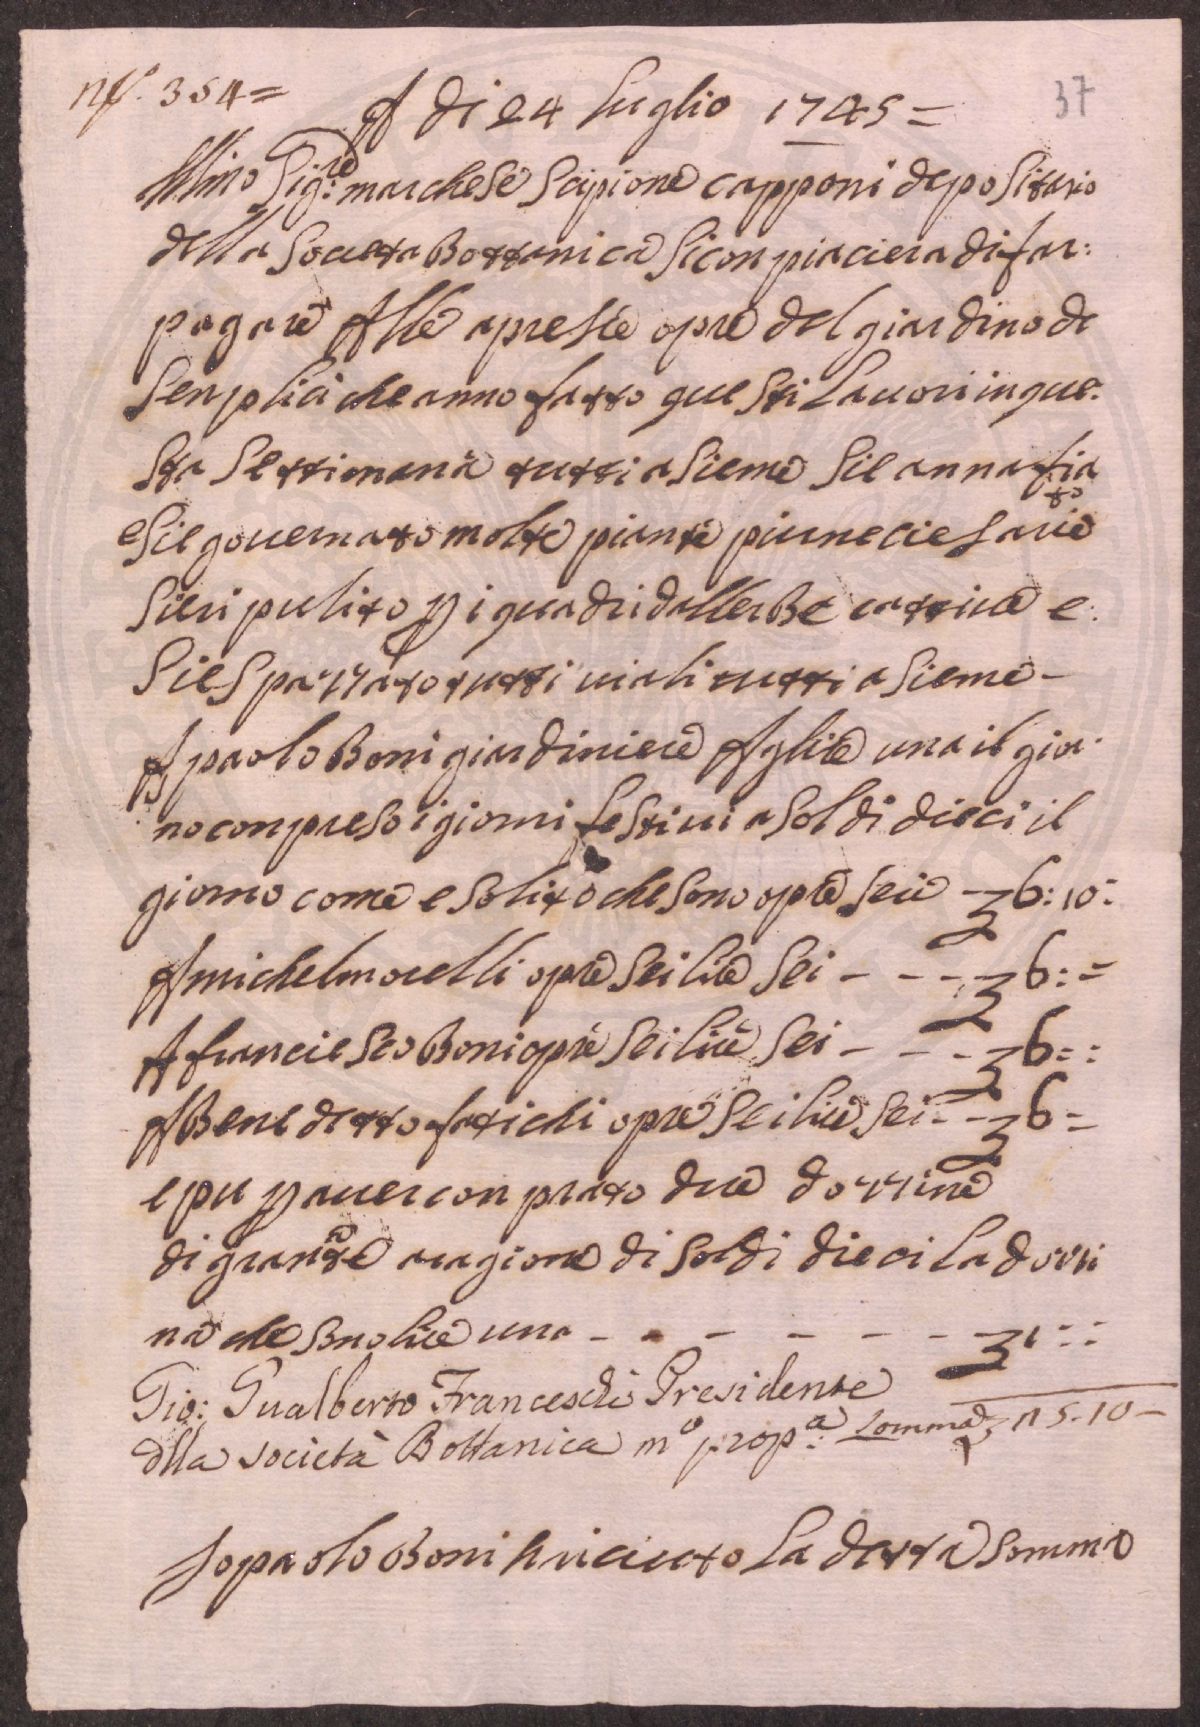 N.º 354=
37
A di 24 Luglio 1745=
Illmo Sig:re marchese Scipione capponi depositario
della Societa Bottanica Si conpiaciera di far:
pagare Alle apreste opre del giardino de
Senplici che anno fatto questi Lauori in que:
sta Settimana tutti asieme Sie annafia
to
e Sie gouernato molte piante piu neciesarie
Sieri pulito p i quadri dallerBe cattiue e:
Sie Spazzato tutti uiali tutti asieme -
A paolo Boni giardiniere A glire una il gior:
no conpreso i giorni festiui a Soldi dieci il
giorno come e Solito che Sono opre Seie - 6: 10:
A michel morelli opre Sei lire Sei - - - 6: =
A franciesco Boni opre Sei lire Sei - - - 6: :
A Benedetto fatichi opre Sei lire Sei - - 6 =
e piu p auer conprato due dozzine
di granate aragione di Soldi dieci La dozzi
na che Sno lire una - - - - - - - 1 : :
Gio: Gualberto Franceschi Presidente
dlla società Bottanica mº propª: Somma 25.10-
Io paolo Boni ho riceuto La detta Somma